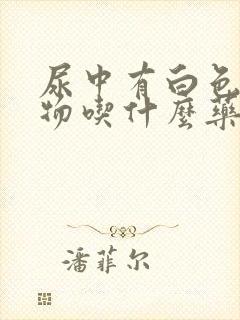 尿中有白色
物喫什麼藥
潘菲尔